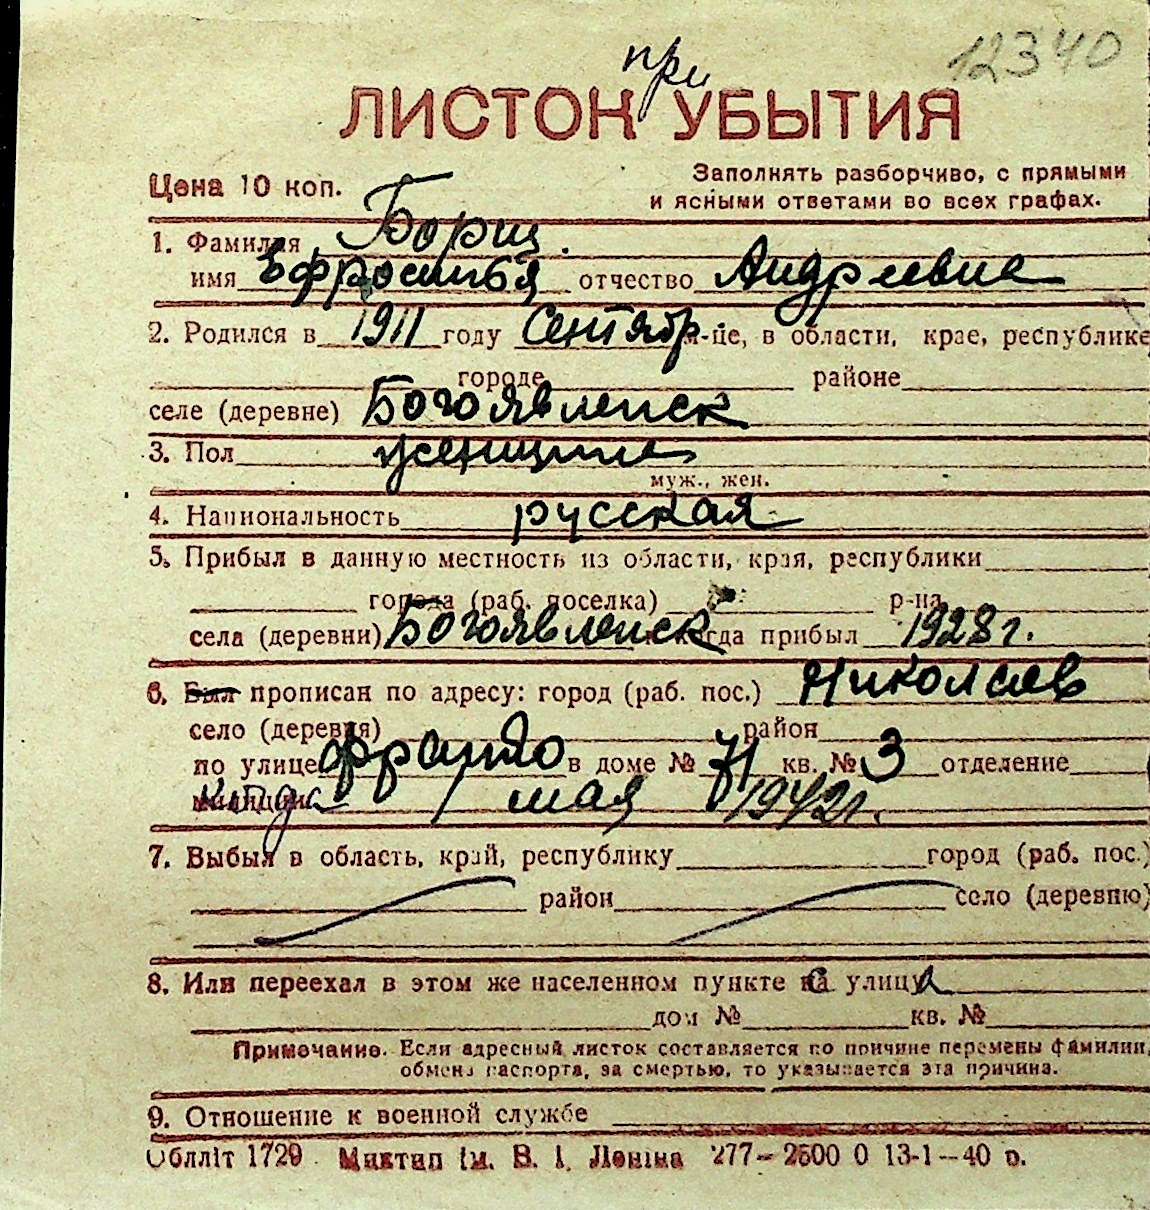 12340
при
ЛИСТОК УБЫТИЯ
Цена 10 коп. Заполнять разборчиво, с прямыми
и ясными ответами во всех графах.
1. Фамилия Борщ.
имя Ефросинья отчество Андреевна
2. Родился в 1911 году Сентябр м-це, в области, крае, республике
городе районе
селе (деревне) Богоявленск
3. Пол женщина
муж., жен.
4. Национальность русская
5. Прибыл в данную местность из области, края, республики
города (раб. поселка) р-на
села (деревни) Богоявленск когда прибыл 1928 г.
6. Был прописан по адресу: город (раб. пос.) Николаев
село (деревня) район
по улице в доме № 71 кв. № 3 отделение
милиции мая 1942 г.
7. Выбыл в область, край, республику город (раб. пос.)
район село (деревню)
8. Или переехал в этом же населенном пункте с улицы
дом № кв. №
Примечание. Если адресный листок составляется по причине перемены фамилии,
обмена паспорта, за смертью, то указывается эта причина.
9. Отношение к военной службе
Облліт 1729 Миктип ім. В. І. Леніна 277-2500 0 13-1-40 р.